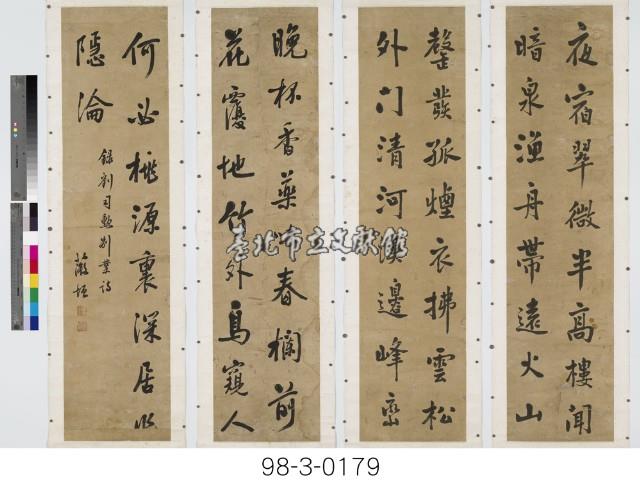 夜宿翠微半高樓聞
暗泉漁舟帶遠火山
磬發孤煙衣拂雲松
外门清河漢邊峰巒
晚杯香藥味春欄前
花覆地竹外鳥窺人
何必桃源裏深居作
隱淪
錄劉司勳別業詩
薇垣
臺北市立文獻館
98-3-0179